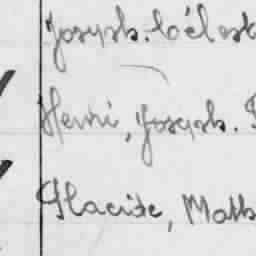 Joseph. Célest
Henri, Joseph.
Placide, Math